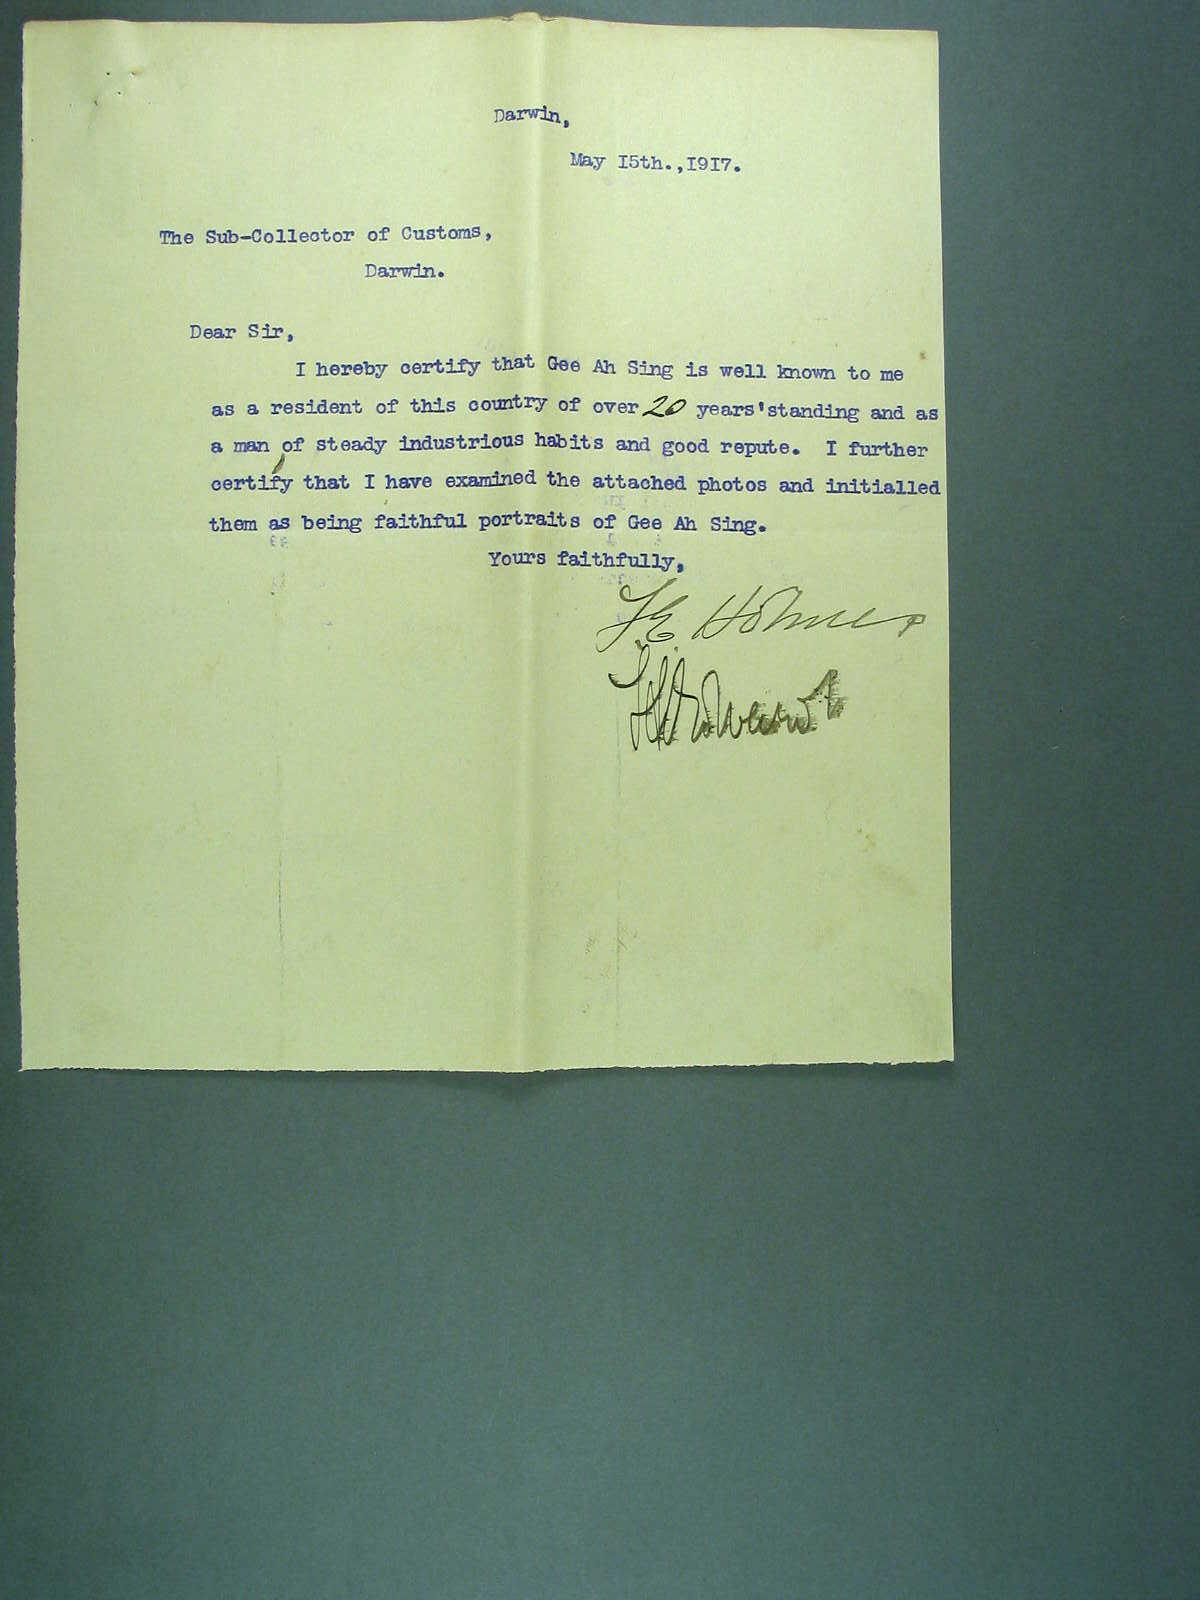 Darwin,
May I5th.,I9I7.
The Sub-Collector of Customs,
Darwin.
Dear Sir,
I hereby certify that Gee Ah Sing is well known to me
as a resident of this country of over 20 years'standing and as
a man of steady industrious habits and good repute. I further
certify that I have examined the attached photos and initialled
them as being faithful portraits of Gee Ah Sing.
Yours faithfully,
F.E. Holmes